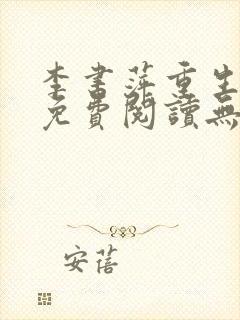 李書萍重生
免費閱讀無
安蓓